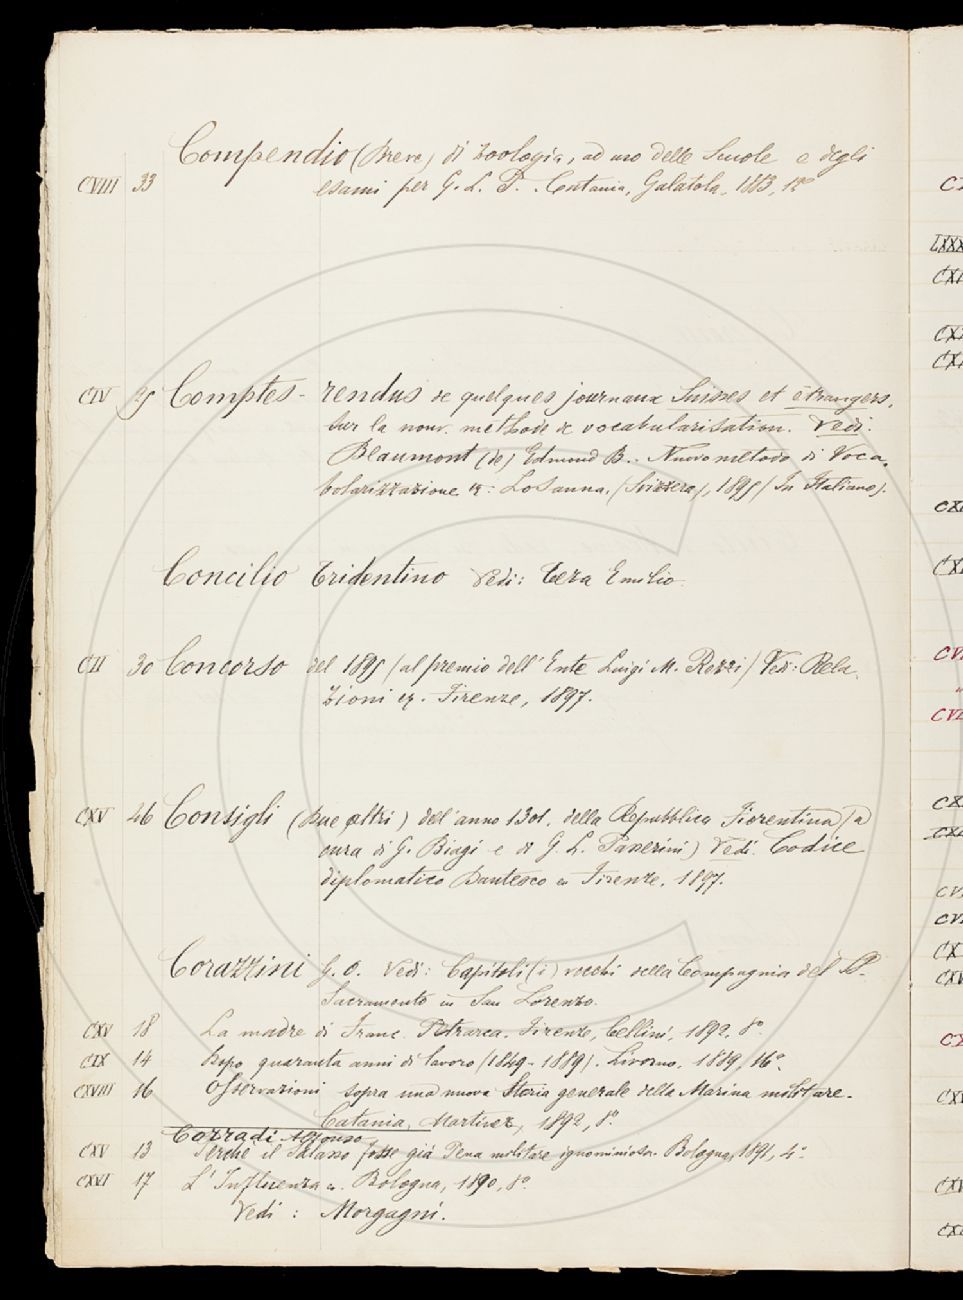 Compendio (Breve) di Zoologia, ad uso delle Scuole e degli
CVIII 33 esami per G. L. P. Catania, Galatola, 1883, 12°
CIV Comptes-rendus de quelques journaux Suisses et étrangers,
sur la nouv. methode de vocabularisation. Vedi:
Beaumont (de) Edmond B. Nuovo metodo di Voca-
bolarizzazione Losanna. (Svizzera), 1895 (In Italiano).
Concilio Tridentino Vedi: Teza Emilio.
CII 30 Concorso del 1895 (al premio dell'Ente Luigi M. Rezzi) Vedi: Rela-
zioni Firenze, 1897.
CXV 46 Consigli (Due altri) dell'anno 1301. della Repubblica Fiorentina (a
cura di G. Biagi e di G. L. Passerini) Vedi Codice
diplomatico Dantesco Firenze. 1897.
Corazzini G. O. Vedi: Capitoli (i) vecchi della Compagnia del SS.
Sacramento in San Lorenzo.
CXV 18 La madre di Franc. Petrarca. Firenze, Cellini, 1892. 8°
CIX 14 Dopo quaranta anni di lavoro (1849-1889). Livorno. 1889, 16°.
CXVIII 16 Osservazioni sopra una nuova Storia generale della Marina militare.
Catania, Martinez, 1892, 8°.
Corradi Alfonso
CXV 13 Perché il Salasso fosse già Pena militare ignominiosa. Bologna, 1891, 4°.
CXVI 17 L'Influenza Bologna, 1890, 8°.
Vedi: Morgagni.